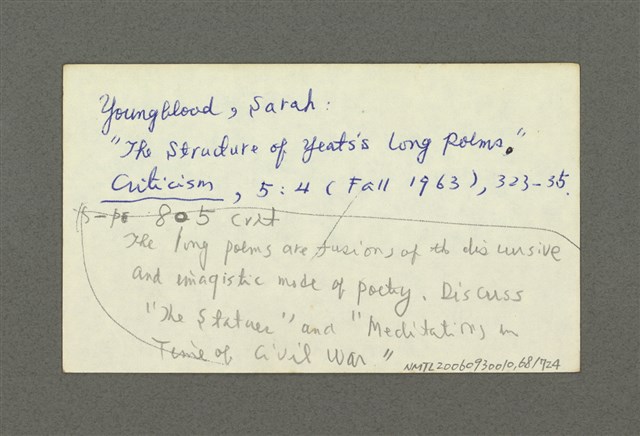 Youngblood, Sarah:
"The Structure of Yeats's Long Poems."
Criticism, 5:4 (Fall 1963), 323-35.
805 Crit
The long poems are fusions of th discursive
and imagistic mode of poetry. Discuss
"The Statues" and "Meditations in
Time of Civil War"
NMTL20060930010,68/724